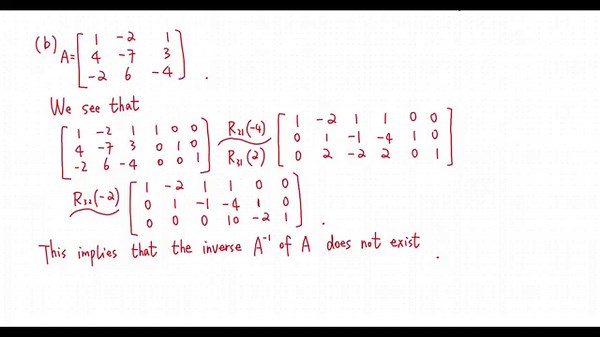 (b) A= [ 1 -2 1
4 -7 3
-2 6 -4 ] .
We see that
[ 1 -2 1 1 0 0
4 -7 3 0 1 0
-2 6 -4 0 0 1 ] R₂₁(-4) R₃₁(2) [ 1 -2 1 1 0 0
0 1 -1 -4 1 0
0 2 -2 2 0 1 ]
R₃₂(-2) [ 1 -2 1 1 0 0
0 1 -1 -4 1 0
0 0 0 10 -2 1 ] .
This implies that the inverse A⁻¹ of A does not exist .